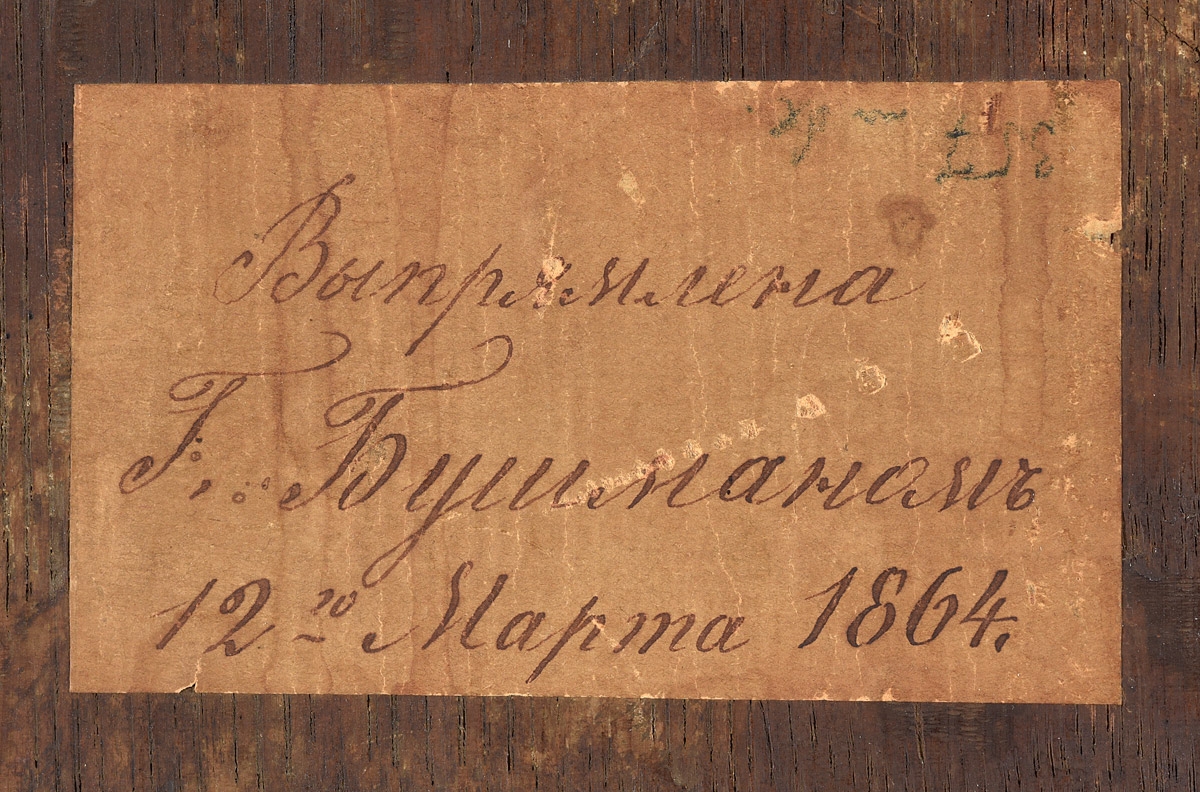 Выпрямлена
Г. Бушманомъ
12го Марта 1864.